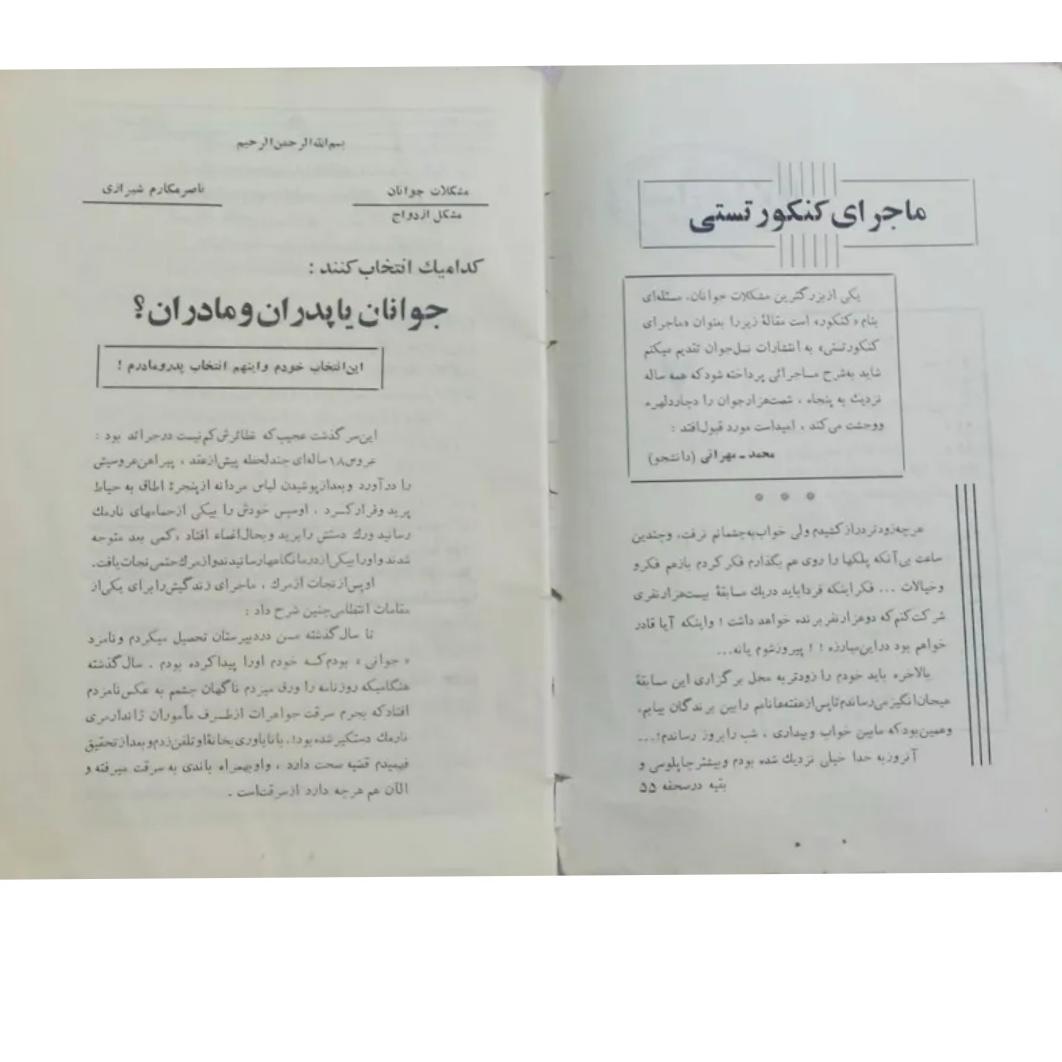 ماجرای کنکور تستی
یکی از بزرگترین مشکلات جوانان، مسئله‌ای
بنام «کنکور» است مقالهٔ زیر را بعنوان «ماجرای
کنکور تستی» به انتشارات نسل‌جوان تقدیم میکنم
شاید به‌شرح ماجرائی پرداخته شود که همه ساله
نزدیك به پنجاه ، شصت‌هزار جوان را دچار دلهره
و وحشت می‌کند ، امید است مورد قبول افتد :
محمد ـ مهرانی (دانشجو)
هرچه زودتر دراز کشیدم ولی خواب به‌چشمانم نرفت، و چندین
ساعت بی‌آنکه پلکها را روی هم بگذارم فکر کردم باز هم فکر و
و خیالات ... فکر اینکه فردا باید در یك مسابقهٔ بیست‌هزار نفری
شرکت کنم که دو هزار نفر برنده خواهد داشت ! و اینکه آیا قادر
خواهم بود در این مبارزه ! ! پیروز شوم یا نه...
بالاخره باید خودم را زودتر به محل برگزاری این مسابقهٔ
هیجان انگیز می‌رساندم تا پس از هفته‌ها نامم را بین برندگان بیابم،
و همین بود که مابین خواب و بیداری ، شب را بروز رساندم!...
آنروز به خدا خیلی نزدیك شده بودم و بیشتر چاپلوسی و
بقیه در صحفه ۵۵
بسم الله الرحمن الرحیم
مشکلات جوانان
ناصر مکارم شیرازی
مشکل ازدواج
کدامیك انتخاب کنند :
جوانان یا پدران و مادران ؟
این انتخاب خودم و اینهم انتخاب پدر و مادرم !
این سرگذشت عجیب که نظائرش کم نیست در جرائد بود :
عروس ۱۸ ساله‌ای چند لحظه پیش از عقد ، پیراهن عروسیش
را در آورد و بعد از پوشیدن لباس مردانه از پنجرهٔ اطاق به حیاط
پرید و فرار کرد . او سپس خودش را بیکی از حمامهای نارمك
رسانید و رك دستش را برید و بحال اغماء افتاد ، کمی بعد متوجه
شدند و او را بیکی از درمانگاهها رسانیدند و از مرك حتمی نجات یافت.
او پس از نجات از مرك ، ماجرای زندگیش را برای یکی از
مقامات انتظامی چنین شرح داد :
تا سال گذشته من در دبیرستان تحصیل میکردم و نامزد
« جوانی » بودم که خودم او را پیدا کرده بودم . سال گذشته
هنگامیکه روزنامه را ورق میزدم ناگهان چشمم به عکس نامزدم
افتاد که بجرم سرقت جواهرات از طرف مأموران ژاندارمری
نارمك دستگیر شده بود!. با ناباوری بخانهٔ او تلفن زدم و بعد از تحقیق
فهمیدم قضیه صحت دارد ، و او بهمراه باندی به سرقت میرفته و
الآن هم هرچه دارد از سرقت است .